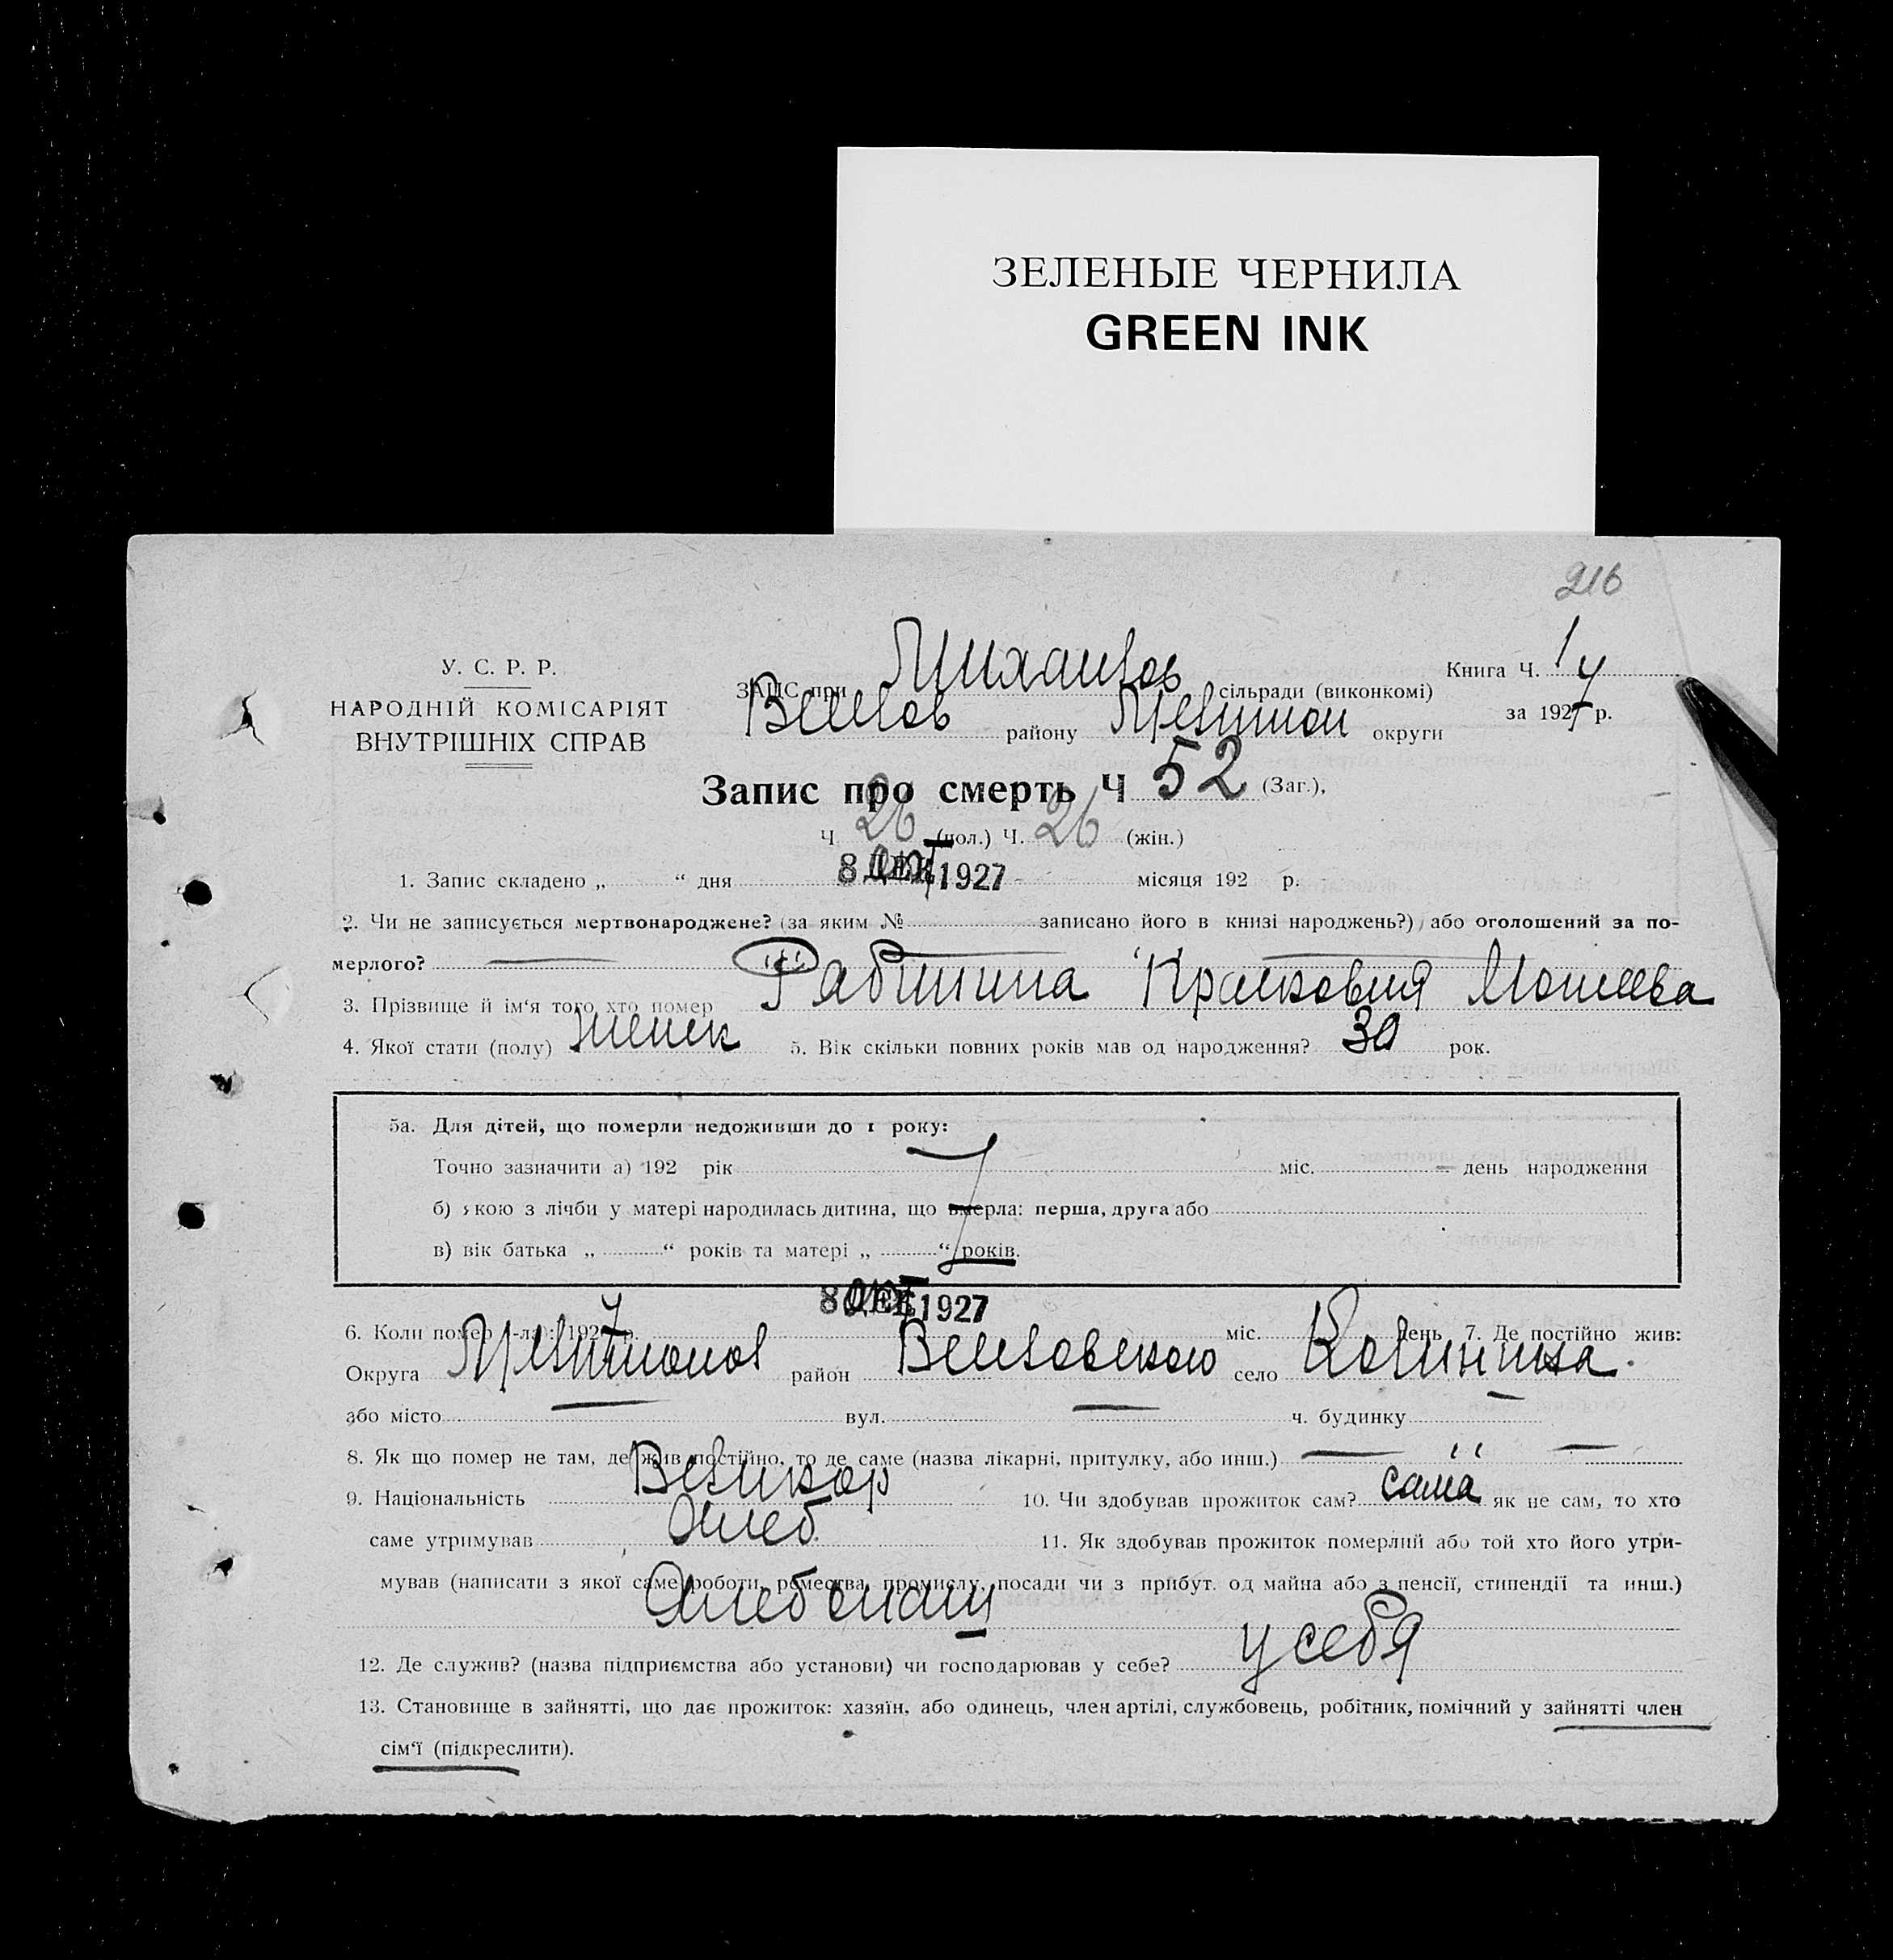 ЗЕЛЕНЫЕ ЧЕРНИЛА
GREEN INK
216
У. С. Р. Р.
НАРОДНІЙ КОМІСАРІЯТ
ВНУТРІШНІХ СПРАВ
ЗАПС при Михайлов сільради (виконкомі)
району округи
Книга Ч. 1
за 1927 р.
Запис про смерть Ч 52 (Заг.),
Ч. 26 (пол.) Ч. 26 (жін.)
1. Запис складено „ “ дня 8 1927 місяця 192 р.
2. Чи не записується мертвонароджене? (за яким № записано його в книзі народжень?) або оголошений за по-
мерлого?
3. Прізвище й ім‘я того хто помер
4. Якої стати (полу) женск 5. Вік скільки повних років мав од народження? 30 рок.
5а. Для дітей, що померли недоживши до 1 року:
Точно зазначити а) 192 рік міс. день народження
б) якою з лічби у матері народилась дитина, що вмерла: перша, друга або
в) вік батька „ “ років та матері „ “ років.
8 1927
6. Коли помер (-ла): 1927 р. міс. день 7. Де постійно жив:
Округа район село
або місто вул. ч. будинку
8. Як що помер не там, де жив постійно, то де саме (назва лікарні, притулку, або инш.)
9. Національність Великор 10. Чи здобував прожиток сам? сама як не сам, то хто
саме утримував 11. Як здобував прожиток померлий або той хто його утри-
мував (написати з якої саме роботи, ремества, промислу, посади чи з прибут. од майна або з пенсії, стипендії та инш.)
12. Де служив? (назва підприємства або установи) чи господарював у себе? у себя
13. Становище в зайнятті, що дає прожиток: хазяїн, або одинець, член артілі, службовець, робітник, помічний у зайнятті член
сім‘ї (підкреслити).